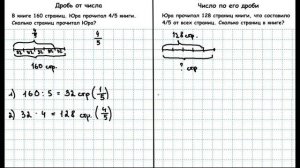 Дробь от числа
В книге 160 страниц. Юра прочитал 4/5 книги.
Сколько страниц прочитал Юра?
4/5
160 стр.
1) 160 : 5 = 32 стр (1/5)
2) 32 · 4 = 128 стр. (4/5)
Число по его дроби
Юра прочитал 128 страниц книги, что составило
4/5 от всех страниц. Сколько страниц в книге?
128 стр.
? стр.